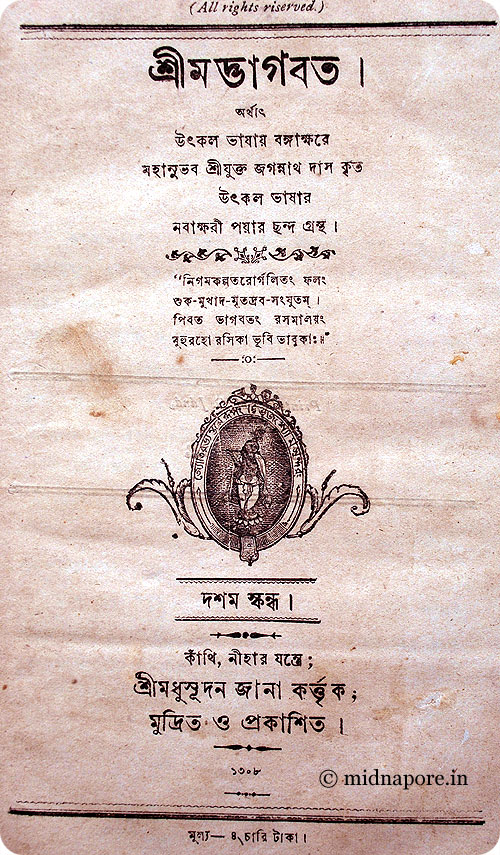 (All rights reserved.)
শ্রীমদ্ভাগবত।
অর্থাৎ
উৎকল ভাষায় বঙ্গাক্ষরে
মহানুভব শ্রীযুক্ত জগন্নাথ দাস কৃত
উৎকল ভাষার
নবাক্ষরী পয়ার ছন্দ গ্রন্থ।
"নিগমকল্পতরোর্গলিতং ফলং
শুক-মুখাদ-মৃতদ্রব-সংযুতম্।
পিবত ভাগবতং রসমালয়ং
মুহুরহো রসিকা ভূবি ভাবুকাঃ॥"
—:০:—
দশম স্কন্ধ।
কাঁথি, নীহার যন্ত্রে;
শ্রীমধুসূদন জানা কর্ত্তৃক;
মুদ্রিত ও প্রকাশিত।
১৩০৮
© midnapore.in
মূল্য— ৪৲ চারি টাকা।